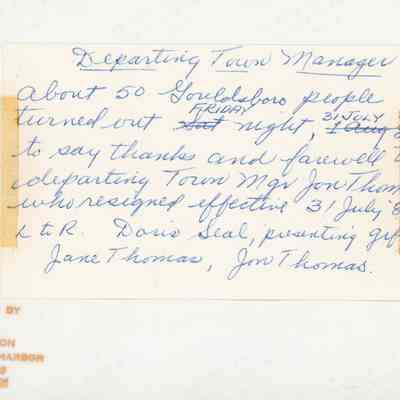 Departing Town Manager
About 50 Gouldsboro people
FRIDAY 31 JULY
turned out Sat night, 1 Aug
to say thanks and farewell
departing Town Mgr Jon Thom
who resigned effective 31 July '8
L to R. Doris Seal, presenting gif
Jane Thomas, Jon Thomas.
BY
ON
HARBOR